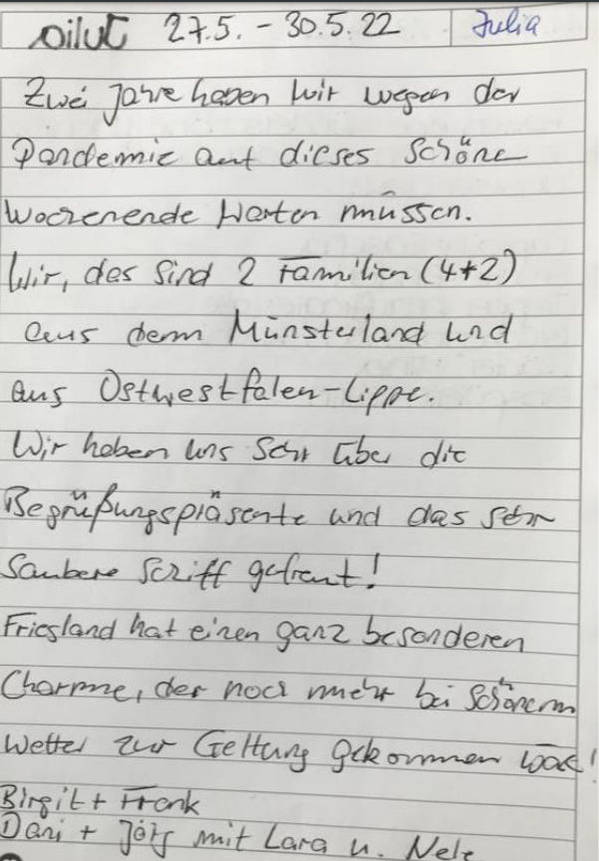 Oilut 27.5. - 30.5.22 Julia
Zwei Jahre haben wir wegen der
Pandemie auf dieses schöne
Wochenende warten müssen.
Wir, das sind 2 Familien (4+2)
aus dem Münsterland und
aus Ostwestfalen-Lippe.
Wir haben uns sehr über die
Begrüßungspräsente und das sehr
saubere Schiff gefreut!
Friesland hat einen ganz besonderen
Charme, der noch mehr bei schönerm
Wetter zur Geltung gekommen wäre!
Birgit + Frank
Dani + Jörg mit Lara u. Nele